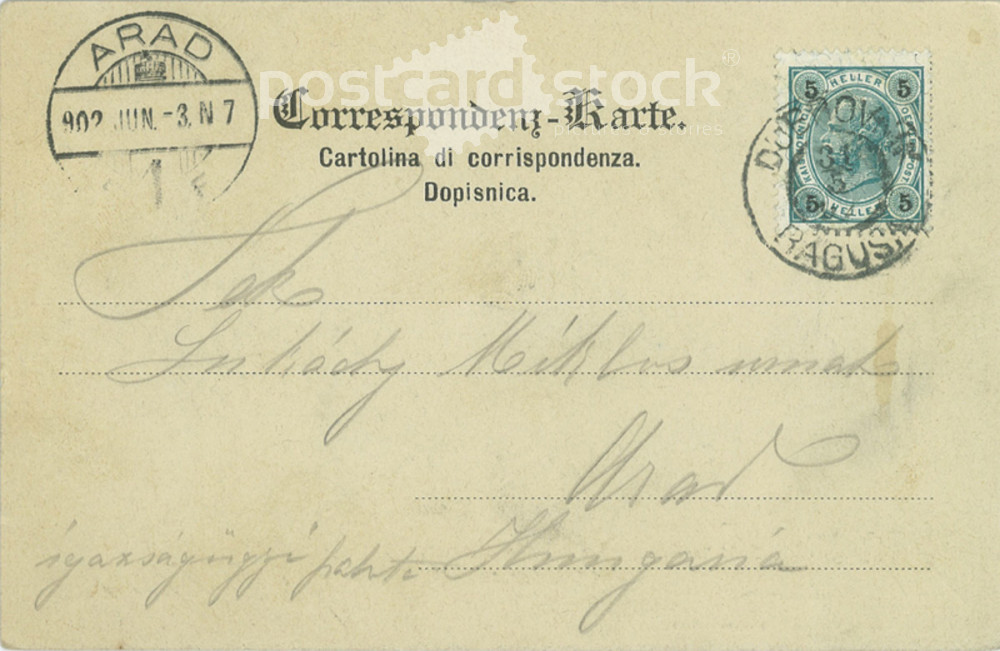 ARAD
902 JUN. -3. N 7
1
postcard stock ®
Correspondenz-Karte.
Cartolina di corrispondenza.
Dopisnica.
5 HELLER 5
5 HELLER 5
RAGUSA
31
5
Tek
Lukády Miklós urnak
Arad
igazságügyi
Hungaria